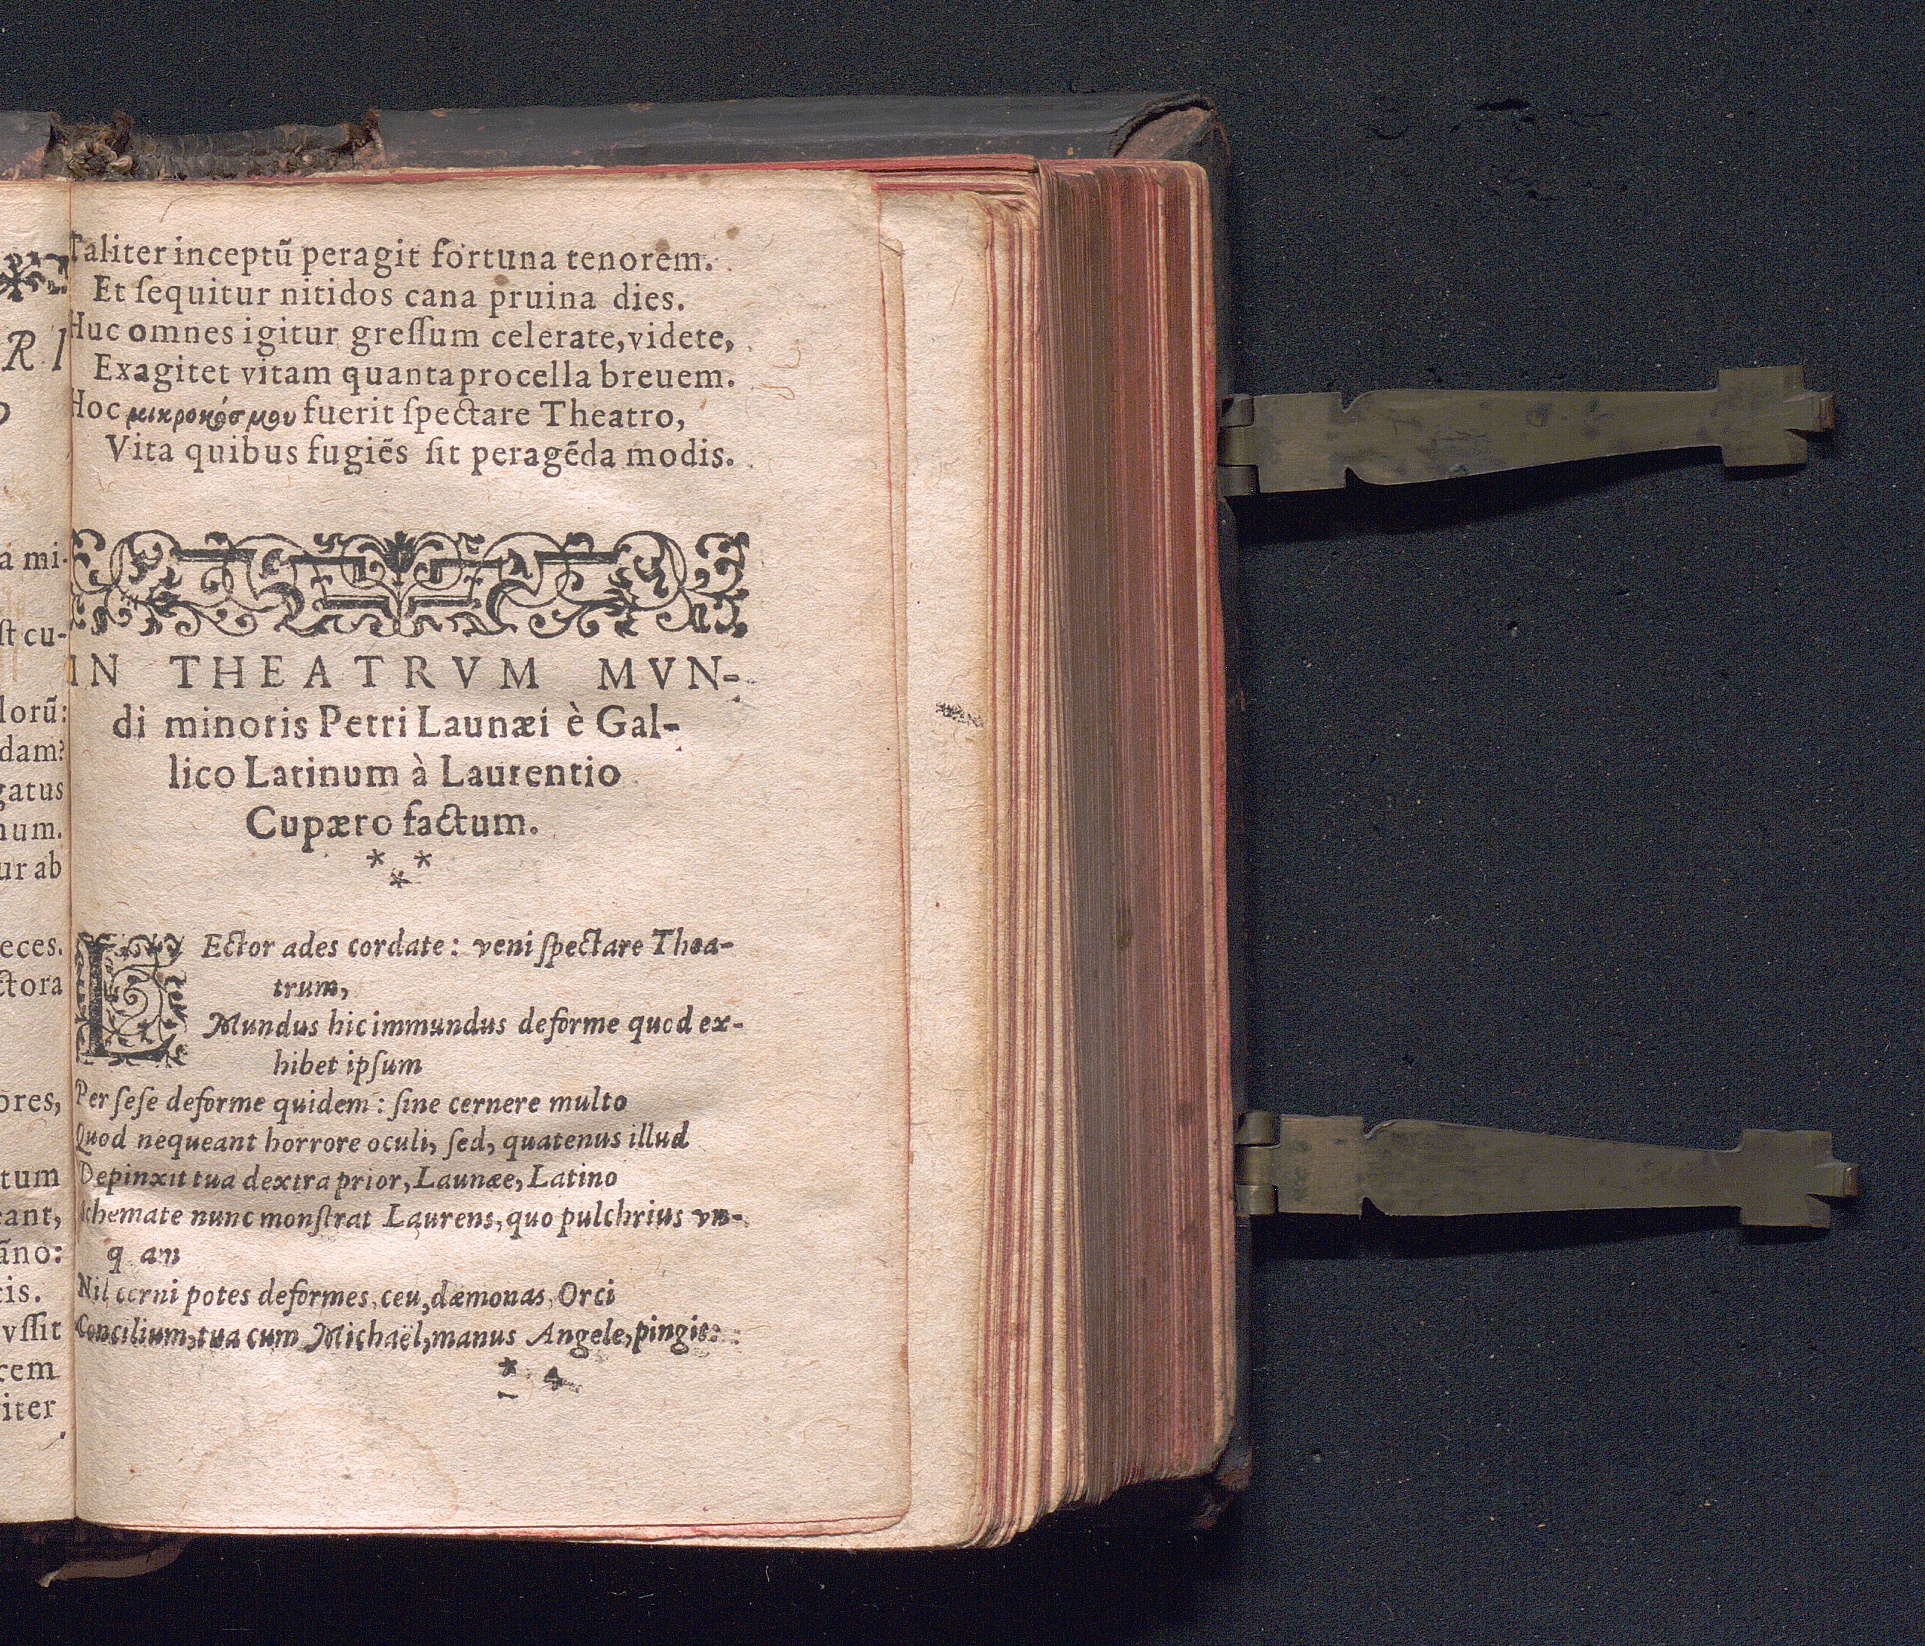 R I
a mi-
st cu-
lorũ:
dam?
gatus
num.
ur ab
eces.
ctora
ores,
tum
eant,
ãno:
cis.
vſſit
cem
iter
Taliter inceptũ peragit fortuna tenorem.
Et ſequitur nitidos cana pruina dies.
Huc omnes igitur greſſum celerate, videte,
Exagitet vitam quanta procella breuem.
Hoc μικροκόσμου fuerit ſpectare Theatro,
Vita quibus fugiẽs ſit peragẽda modis.
IN THEATRVM MVN-
di minoris Petri Launæi è Gal-
lico Latinum à Laurentio
Cupæro factum.
* *
*
LEctor ades cordate: veni ſpectare Thea-
trum,
Mundus hic immundus deforme quod ex-
hibet ipſum
Per ſeſe deforme quidem: ſine cernere multo
Quod nequeant horrore oculi, ſed, quatenus illud
Depinxit tua dextra prior, Launæe, Latino
Schemate nunc monſtrat Laurens, quo pulchrius vn-
q am
Nil cerni potes deformes, ceu, dæmonas, Orci
Concilium, tua cum Michaël, manus Angele, pingit: